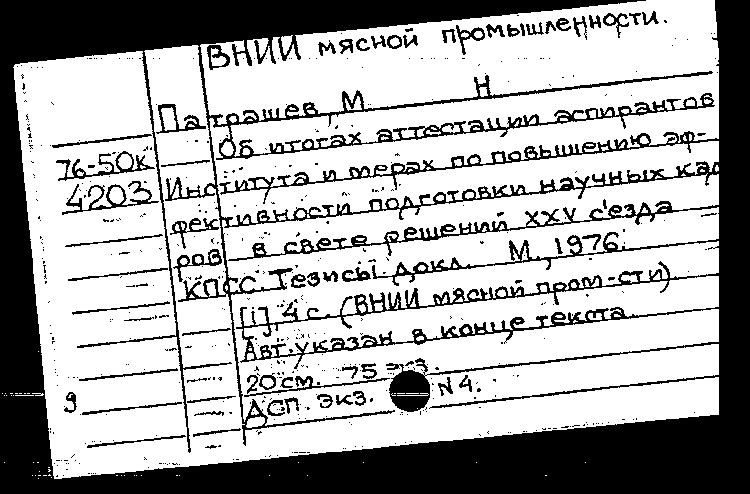 ВНИИ мясной промышленности.
Патрашев, М Н
Об итогах аттестации аспирантов
76-50к
4203 Института и мерах по повышению эф-
фективности подготовки научных кад
ров в свете решений XXV с'езда
КПСС. Тезисы докл. М., 1976.
[1], 4 с. (ВНИИ мясной пром-сти).
Авт. указан в конце текста.
20 см. 75 экз.
9 ДСП. экз. N 4.